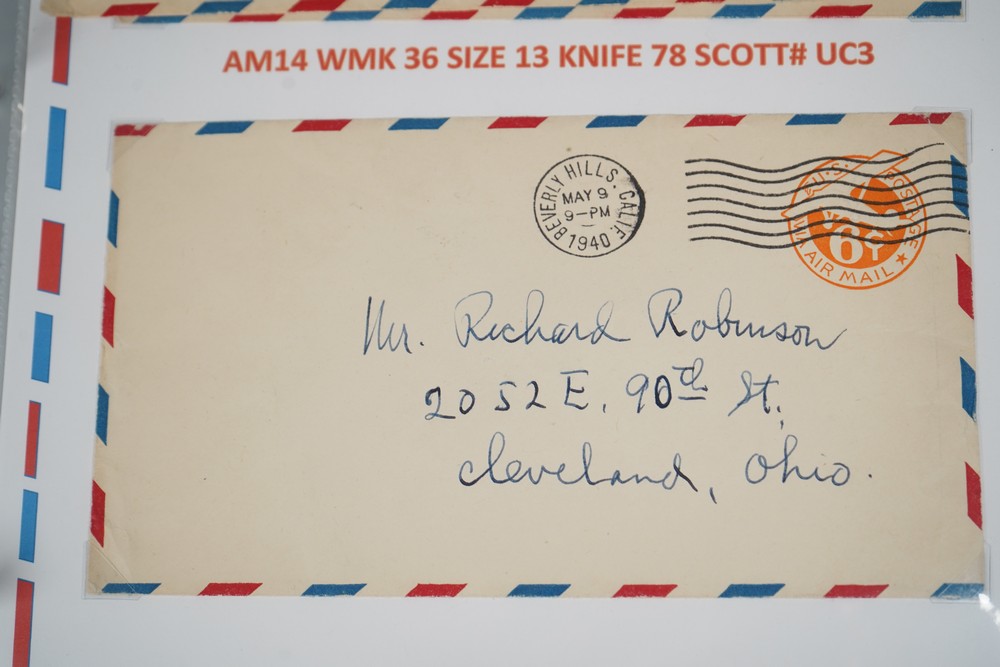 AM14 WMK 36 SIZE 13 KNIFE 78 SCOTT# UC3
BEVERLY HILLS. CALIF.
MAY 9
9-PM
1940
U.S. POSTAGE
6
VIA AIR MAIL
Mr. Richard Robinson
2052 E. 90th St.
Cleveland, Ohio.